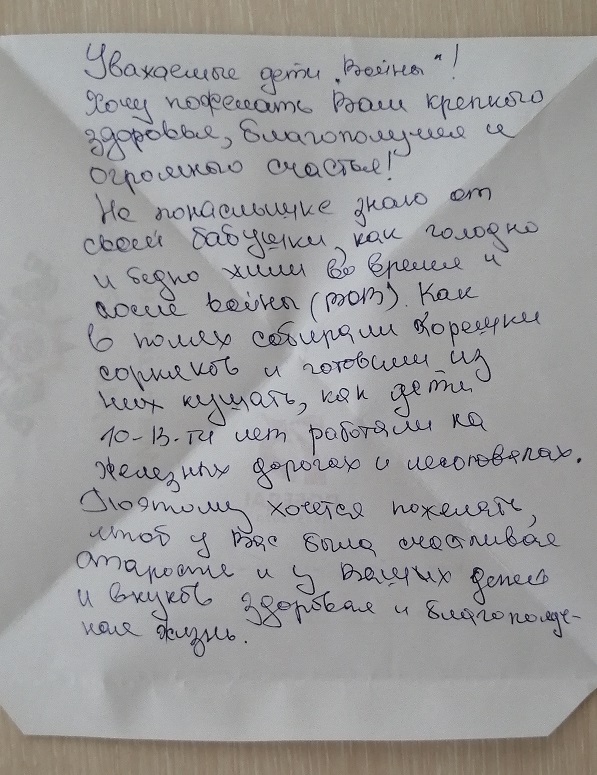 Уважаемые дети „Войны"!
Хочу пожелать Вам крепкого
здоровья, благополучия и
огромного счастья!
Не понаслышке знаю от
своей бабушки, как голодно
и бедно жили во время и
после войны (ВОВ). Как
в полях собирали корешки
сорняков и готовили из
них кушать, как дети
10-13-ти лет работали на
железных дорогах и лесоповалах.
Поэтому хочется пожелать,
чтоб у Вас была счастливая
старость и у Ваших детей
и внуков здоровая и благополуч-
ная жизнь.